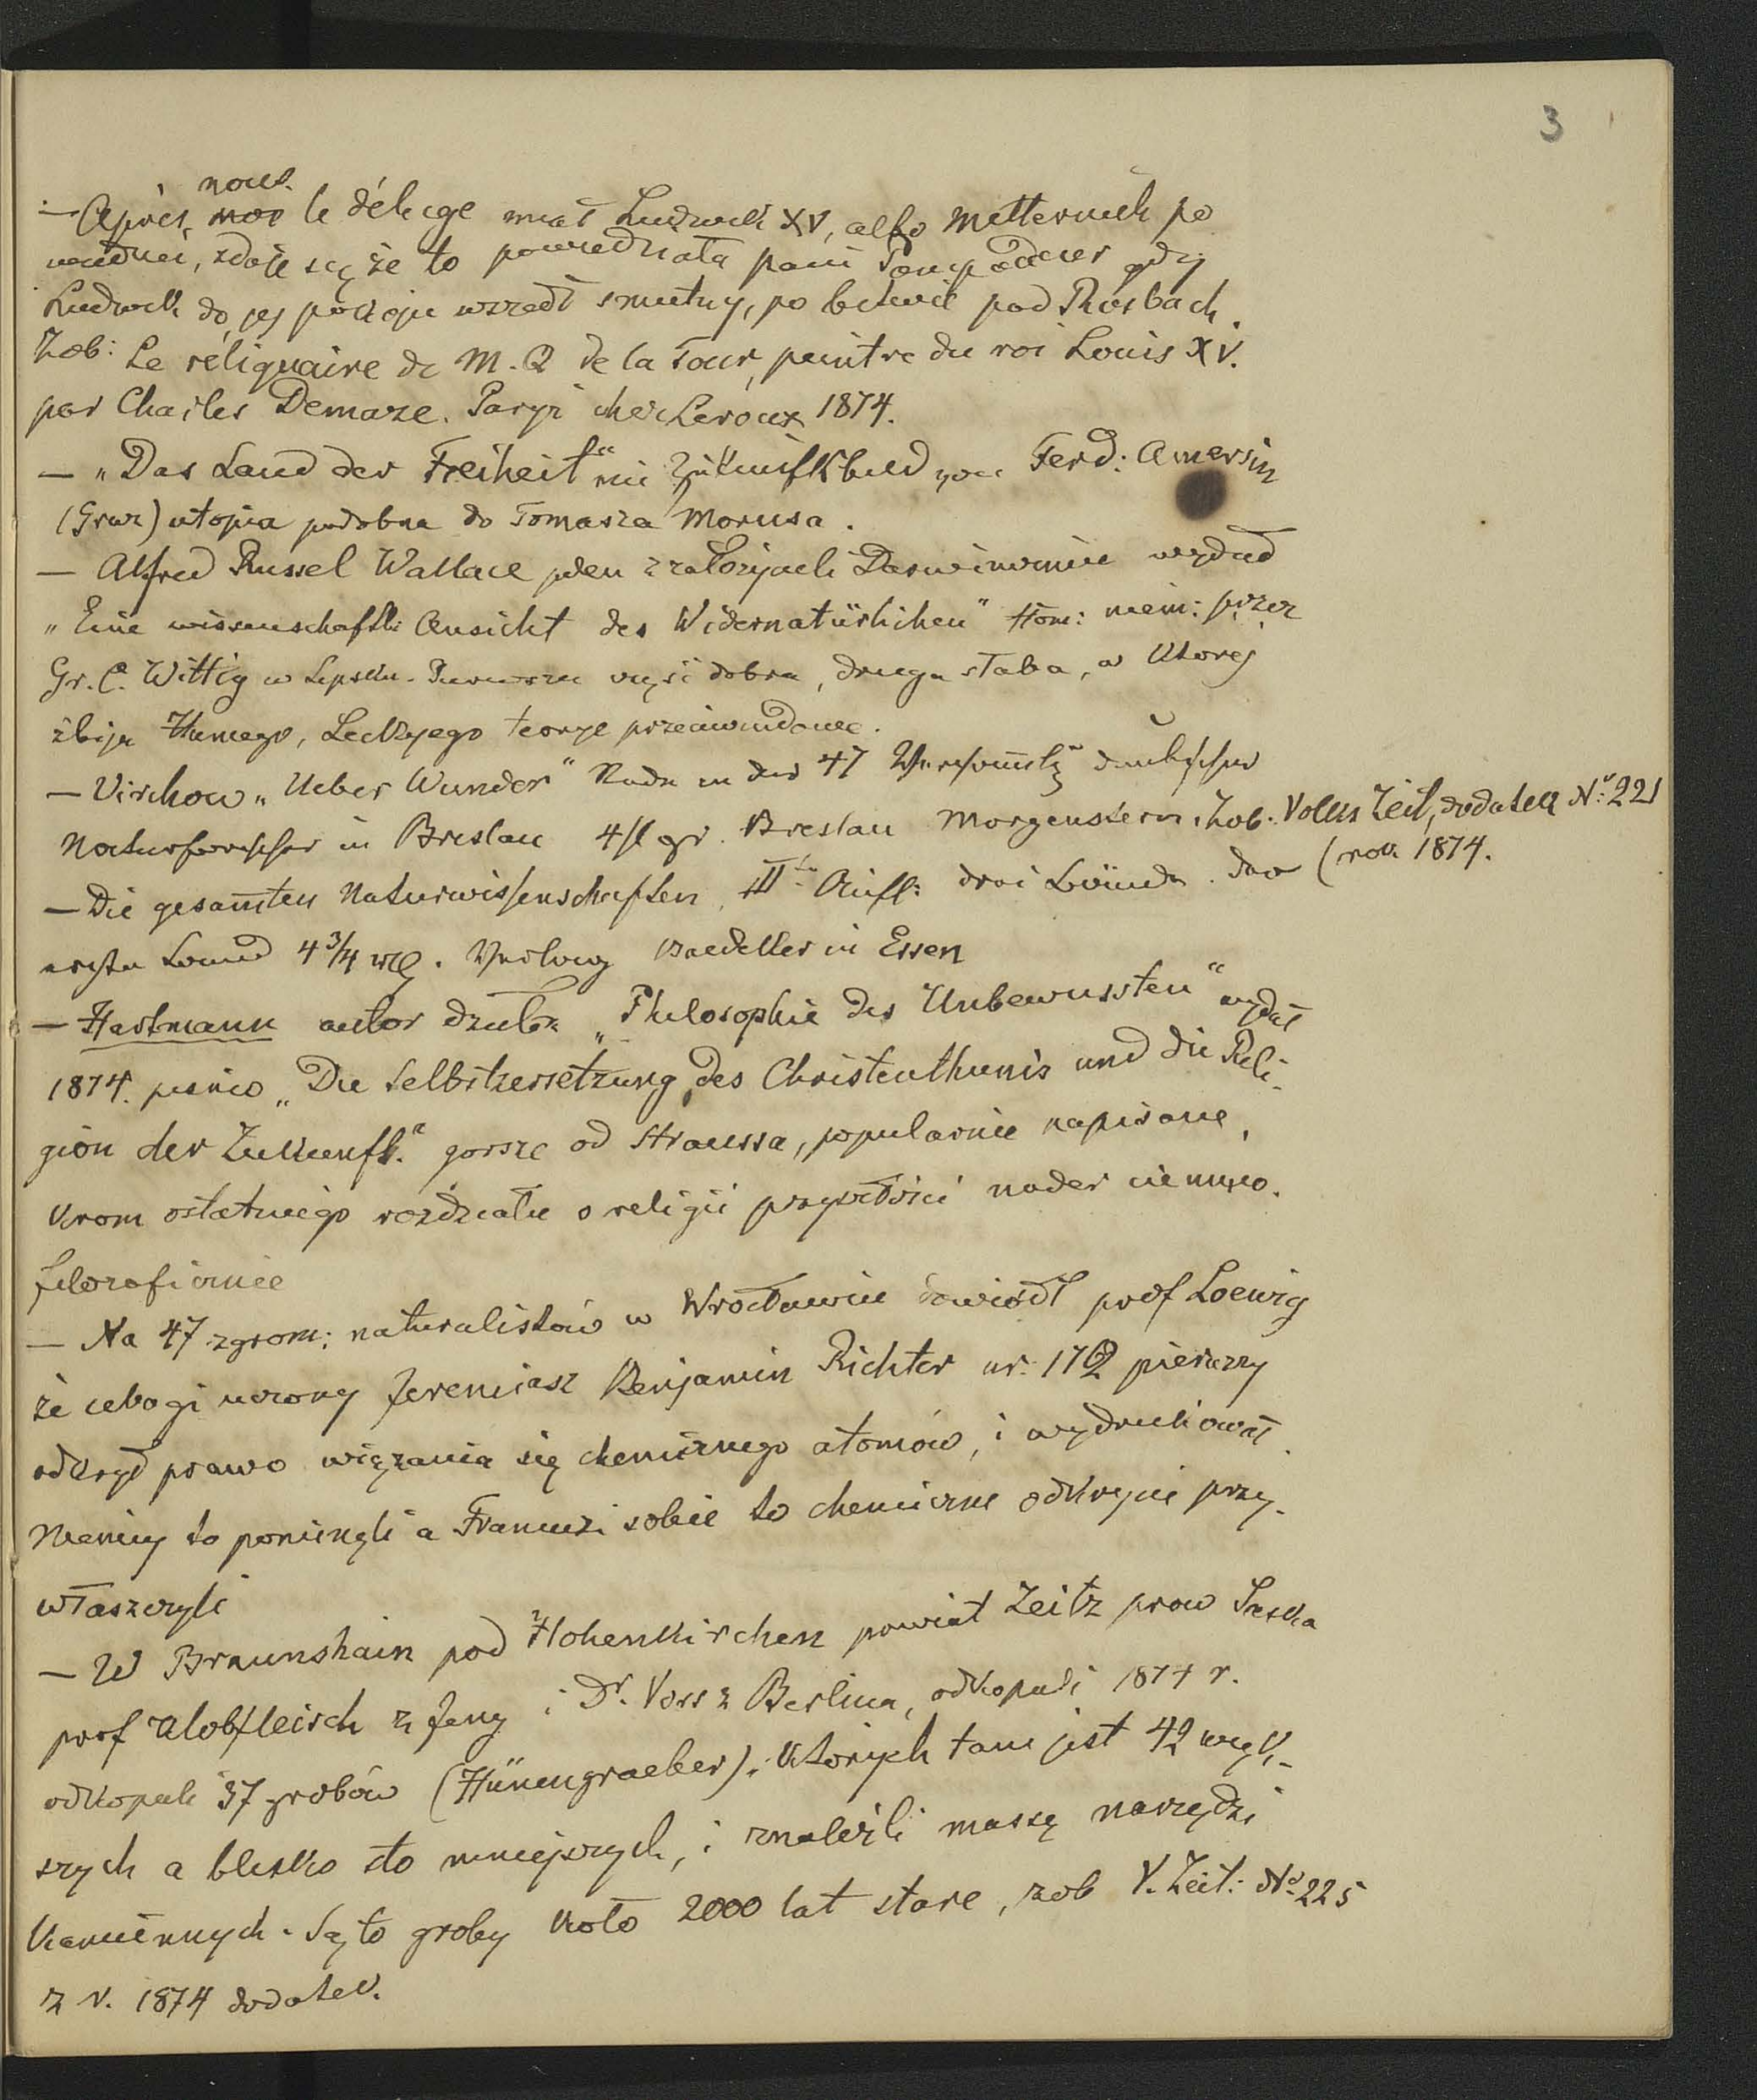 3
nous.
— Après moi le déluge miał Ludwik XV, albo Metternich po
wiedzieć, zdaje się że to powiedziała pani Pompadour gdy
Ludwik do jej pokoju wszedł smutny, po bitwie pod Rosbach.
Zob: Le réliquaire de M. Q de la Tour, peintre du roi Louis XV.
par Charles Demaze. Paryż chez Leroux 1874.
— „Das Land der Freiheit“ ein Zukunftsbild von Ferd: Amersin
(Graz) utopia podobna do Tomasza Morusa.
— Alfred Russel Wallace jeden z założycieli Darwinizmu wydał
„Eine wissenschaftl: Ansicht des Widernatürlichen“ tłom: niem: przez
Gr. C. Wittig w Lipsku. Pierwsza część dobra, druga słaba, w której
zbija Humego, Leckyego teorye przeciw cudowne.
— Virchow „Ueber Wunder“ Rede in der 47 Versammlg deutscher
Naturforscher in Breslau 4 sl gr. Breslau Morgenstern. Zob. Volks Zeit, dodatek No: 221
— Die gesamten Naturwissenschaften, III Aufl: drei Bände. der (rok 1874.
erste Band 4 3/4 Verlag Baedeker in Essen
— Hartmann autor dzieła „Philosophie des Unbewussten“ wydał
1874. pismo „Die Selbstzersetzung des Christenthums und die Reli-
gion der Zukunft.“ gorsze od Straussa, popularnie napisane,
krom ostatniego rozdziału o religii przyszłości nader ciemno.
filozoficznie
— Na 47 zgrom: naturalistów w Wrocławiu dowiódł prof Loewig
że ubogi uczony Jeremiasz Benjamin Richter ur. 1762 pierwszy
odkrył prawo wiązania się chemicznego atomów, i wydrukował.
Niemcy to pominęli a Francuzi sobie to chemiczne odkrycie przy-
właszczyli
— W Braunshain pod Hohenkirchen powiat Zeitz prow Saska
prof Klobfleisch z Jeny i Dr. Voss z Berlina, odkopali 1874 r.
odkopali 37 grobów (Hünengraeber). których tam jest 42 więk-
szych a blisko sto mniejszych, i znaleźli massę narzędzi
kamiennych. Są to groby koło 2000 lat stare, zob V. Zeit: No 225
z r. 1874 dodatek.